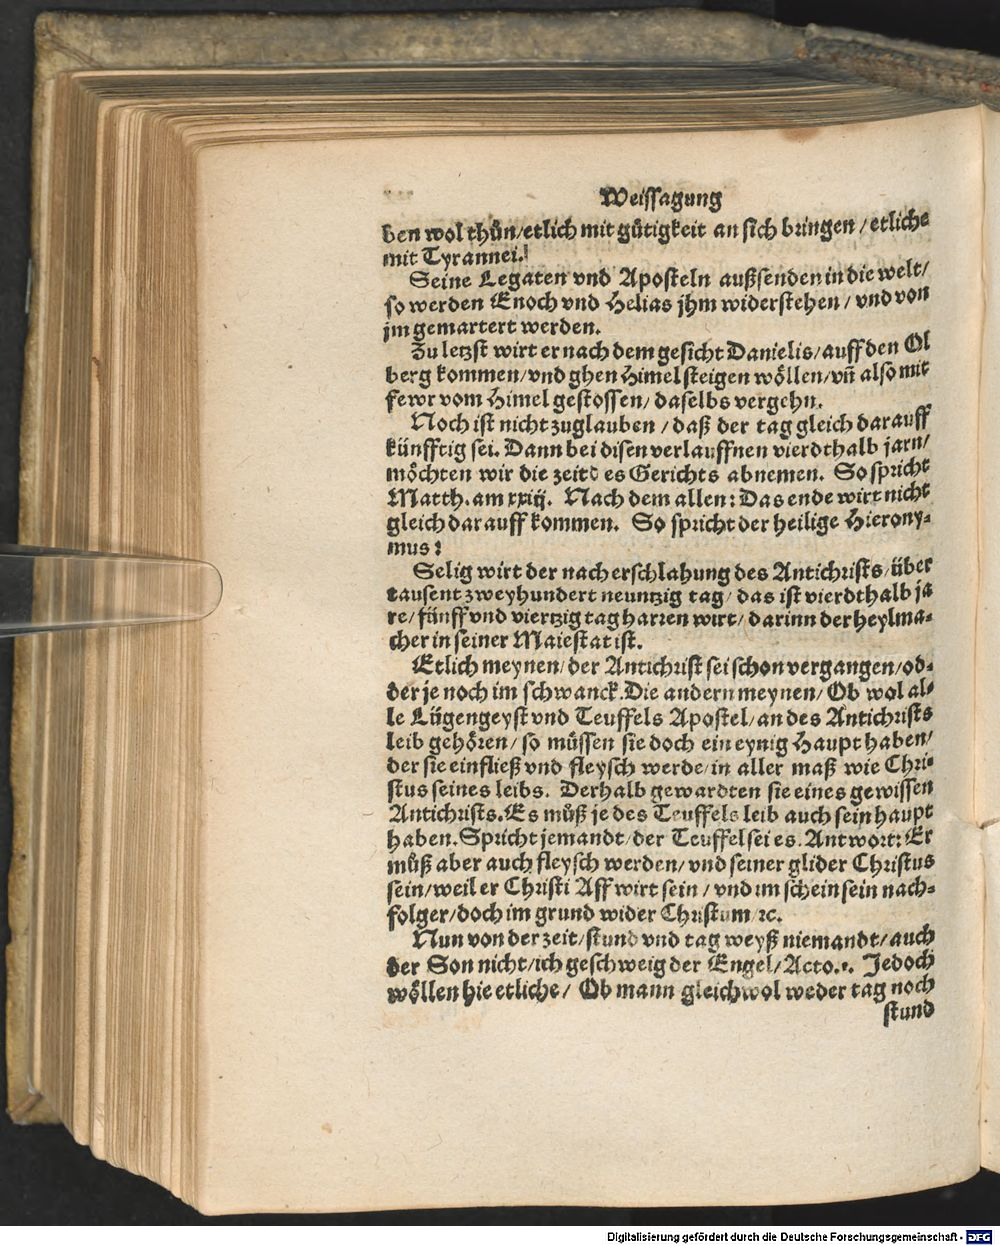 Weissagung
ben wol thůn/etlich mit gütigkeit an sich bringen/etliche
mit Tyrannei.
Seine Legaten vnd Aposteln außsenden in die welt/
so werden Enoch vnd Helias jhm widerstehen/vnd von
jm gemartert werden.
Zu letzst wirt er nach dem gesicht Danielis/auff den Ol
berg kommen/vnd ghen Himel steigen wöllen/vñ also mit
fewr vom Himel gestossen/daselbs vergehn.
Noch ist nicht zuglauben/daß der tag gleich darauff
künfftig sei. Dann bei disen verlauffnen vierdthalb jarn/
möchten wir die zeit des Gerichts abnemen. So spricht
Matth. am xxiij. Nach dem allen: Das ende wirt nicht
gleich darauff kommen. So spricht der heilige Hierony-
mus:
Selig wirt der nach erschlahung des Antichrists/über
tausent zweyhundert neuntzig tag/das ist vierdthalb ja
re/fünff vnd viertzig tag harren wirt/darinn der heylma-
cher in seiner Maiestat ist.
Etlich meynen/der Antichrist sei schon vergangen/od-
der je noch im schwanck. Die andern meynen/Ob wol al-
le Lügengeyst vnd Teuffels Apostel/an des Antichrists
leib gehören/so müssen sie doch ein eynig Haupt haben/
der sie einfließ vnd fleysch werde/in aller maß wie Chri-
stus seines leibs. Derhalb gewardten sie eines gewissen
Antichrists. Es můß je des Teuffels leib auch sein haupt
haben. Spricht jemandt/der Teuffel sei es. Antwort: Er
můß aber auch fleysch werden/vnd seiner glider Christus
sein/weil er Christi Aff wirt sein/vnd im schein sein nach-
folger/doch im grund wider Christum/ꝛc.
Nun von der zeit/stund vnd tag weyß niemandt/auch
der Son nicht/ich geschweig der Engel/Acto. j. Jedoch
wöllen hie etliche/Ob mann gleichwol weder tag noch
stund
Digitalisierung gefördert durch die Deutsche Forschungsgemeinschaft - DFG